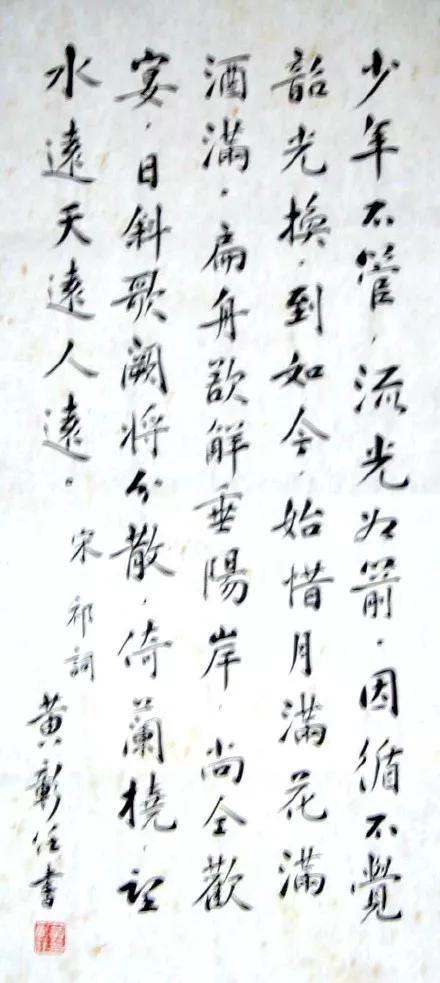 少年不管，流光如箭。因循不覺
韶光換，到如今，始惜月滿花滿
酒滿。扁舟欲解垂陽岸，尚仝歡
宴，日斜歌闋將分散，倚蘭橈，望
水遠天遠人遠。
宋祁詞
黃彰任書